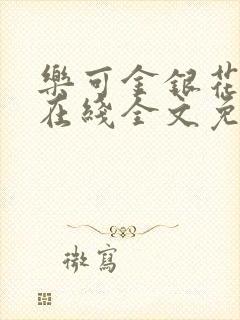 樂可金銀花
在綫全文免
微寫